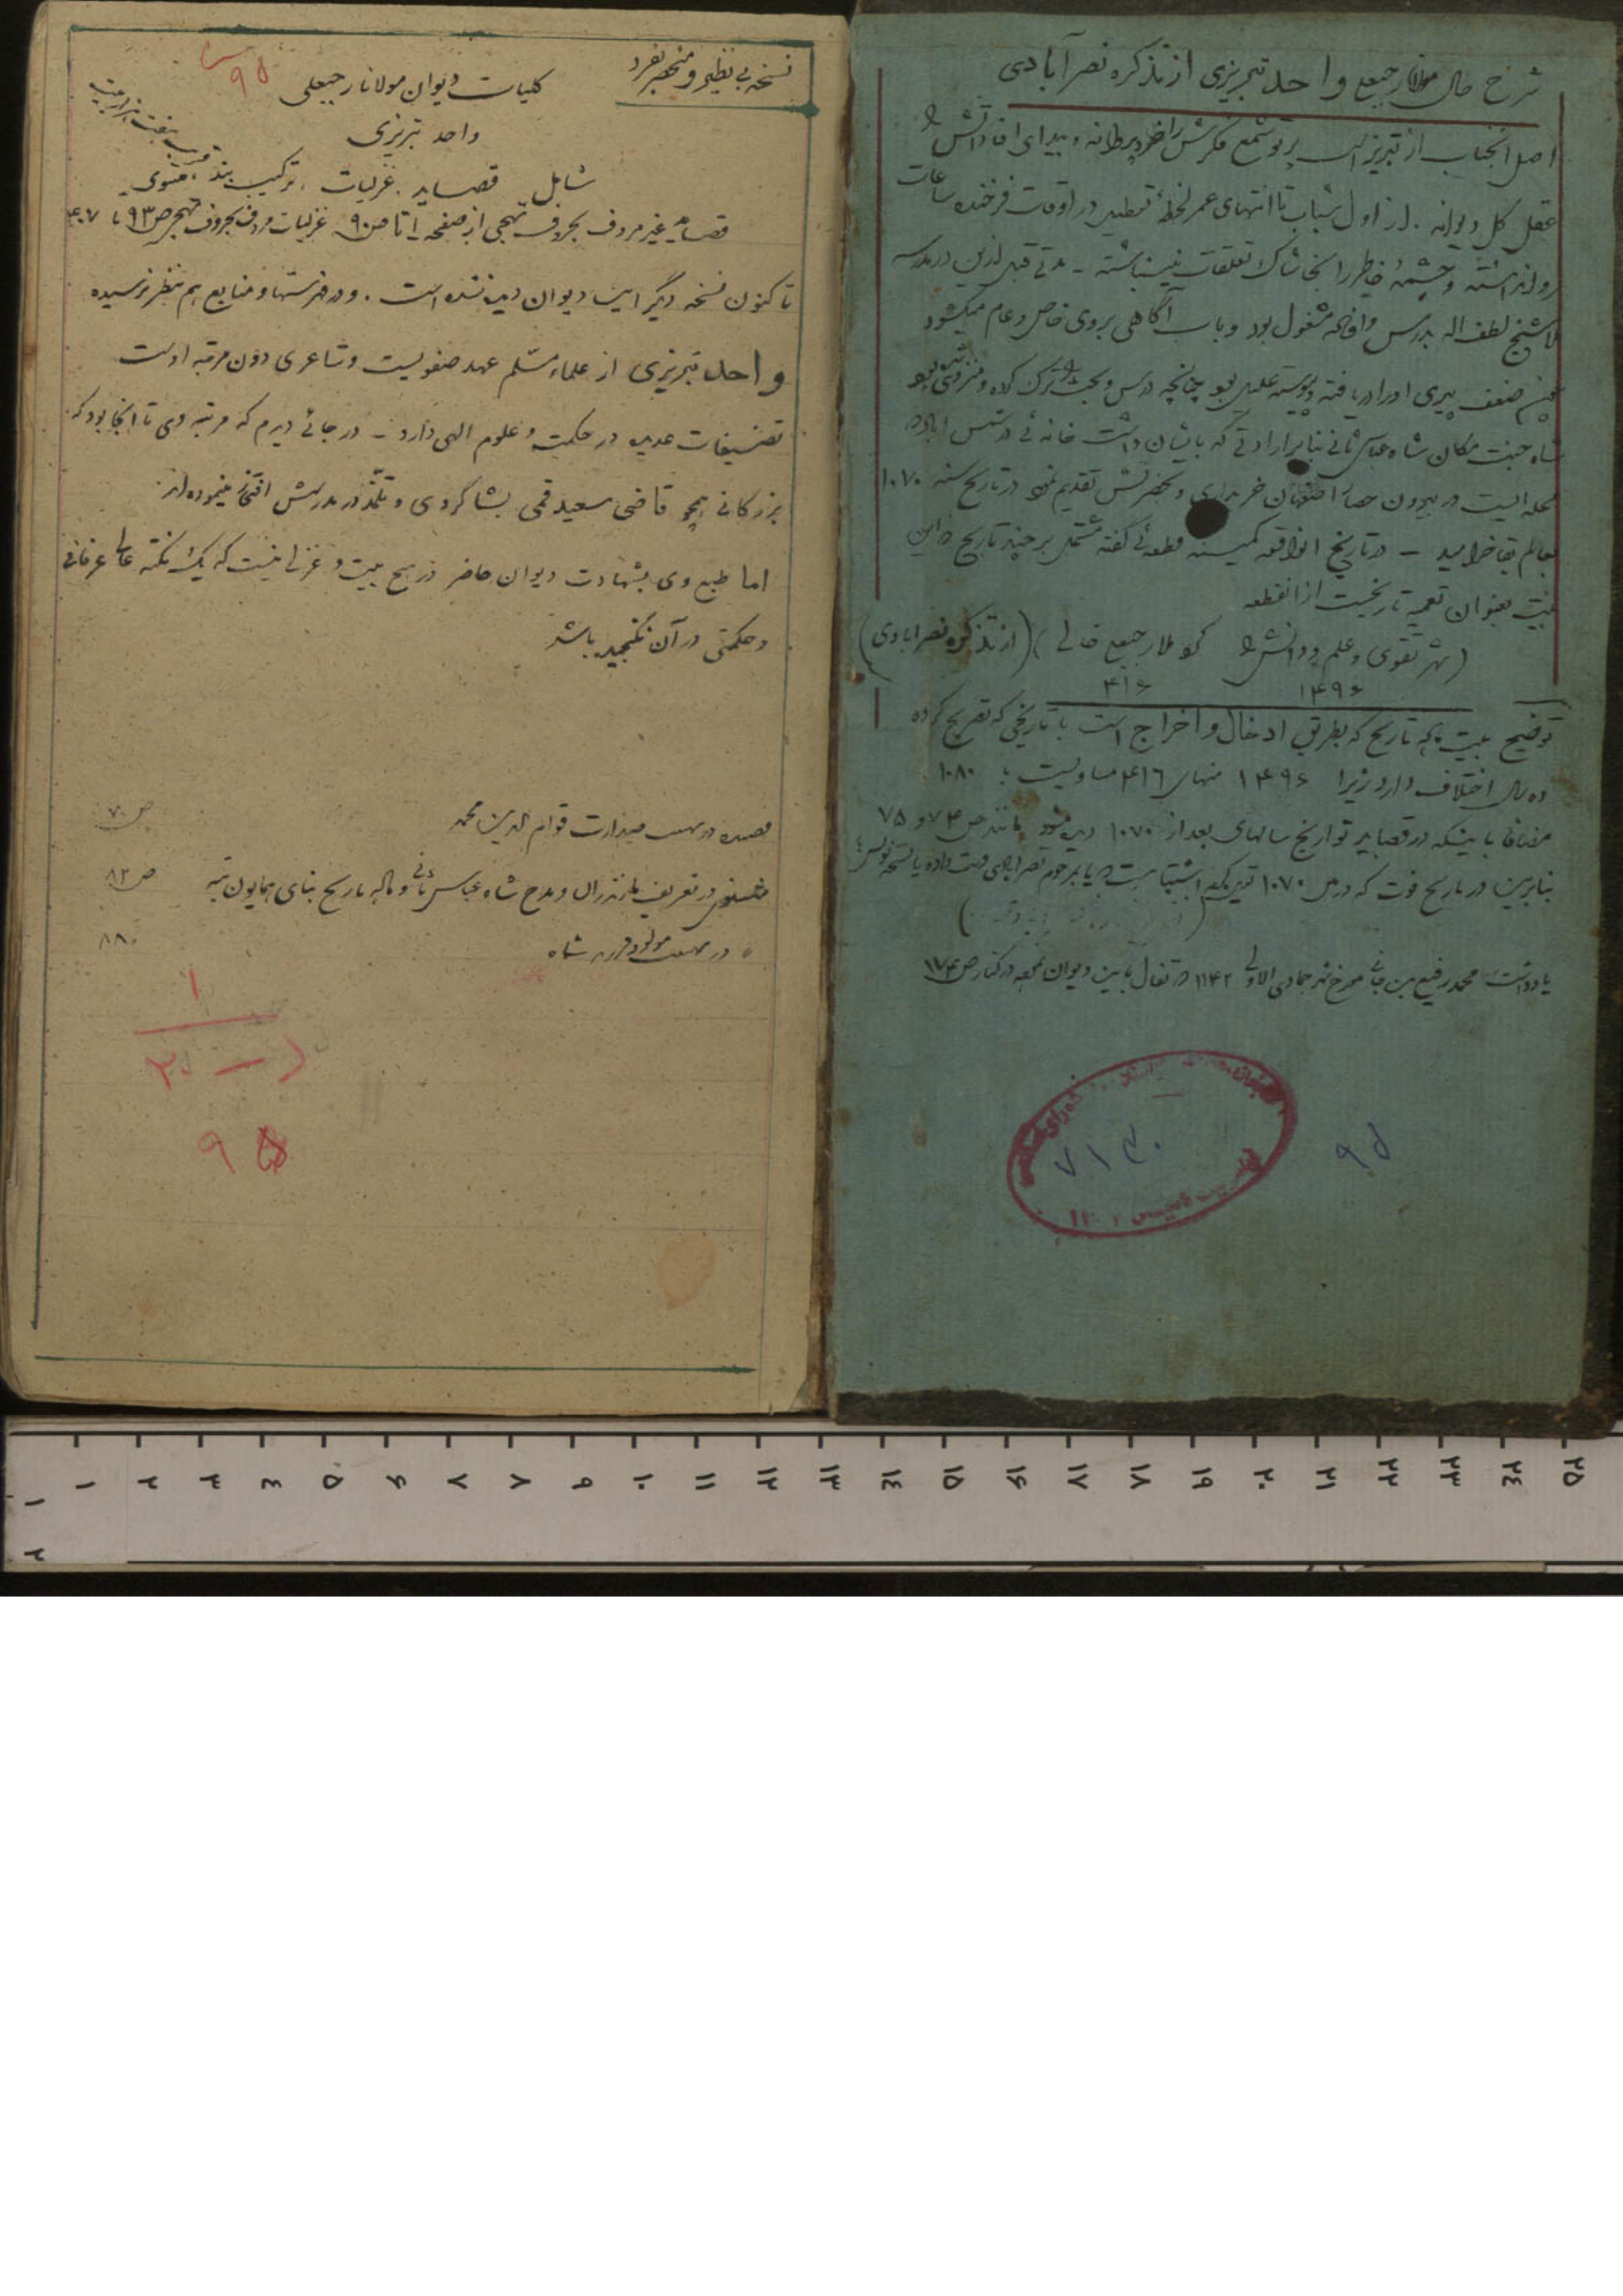 شرح حال مولانا رجبعلی واحد تبریزی از تذکره نصرآبادی
اصل آنجناب از تبریز است پرتو شمع فکرش را خرد پروانه و بیدای افاداتش را
عقل کل دیوانه . از اول شباب تا انتهای عمر لحظهٔ تعطیل در اوقات فرخنده ساعات
روا نداشته و چشمهٔ خاطر را بخاشاک تعلقات نینباشته - مدتی قبل ازین در مدرسه
شیخ لطف اله بدرس و افاده مشغول بود و باب آگاهی بروی خاص و عام میگشود
ضعف پیری او را دریافته و پیوسته علیل بود چنانچه درس و بحث را ترک کرده و منزوی شده بود
شاه جنت مکان شاه عباس ثانی بنابر ارادتی که بایشان داشت خانه‌ئی در شمس آباد که
محله ایست در بیرون حصار اصفهان خریداری و بحضرتش تقدیم نمود در تاریخ سنه ۱۰۷۰
بعالم بقا خرامید - در تاریخ الواقعه کمینه قطعه‌ئی گفته مشتمل بر چند تاریخ و این
بیت بعنوان تعمیه تاریخیست از آنقطعه
(شهر تقوی و علم و دانش را کرد ملا رجبعلی خالی) (از تذکره نصرآبادی)
۱۴۹۶ ۴۱۶
توضیح بیت ماده تاریخ که بطریق ادخال و اخراج است با تاریخی که تصریح کرده
ده سال اختلاف دارد زیرا ۱۴۹۶ منهای ۴۱۶ مساویست با ۱۰۸۰
مضافا باینکه در قصاید تواریخ سالهای بعد از ۱۰۷۰ دیده میشود مانند ص ۷۴ و ۷۵
بنابرین در تاریخ فوت که در سال ۱۰۷۰ اشتباهیست یا بمرحوم نصرآبادی دست داده یا نسخه نویس
یادداشت محمد رفیع بن جانی مورخ شهر جمادی الاولی ۱۱۴۲ در تفال باین دیوان در کنار ص ۱۷۴
۹۵
۷۱۴۰
نسخه بی نظیر و منحصر بفرد
۹۵
کلیات دیوان مولانا رجبعلی
واحد تبریزی
شامل قصاید . غزلیات . ترکیب بند . مثنوی
قصاید غیر مردف بحروف تهجی از صفحه ۱ تا ص ۹۰ غزلیات مردف بحروف تهجی ص ۹۳ تا ۴۰۷
تا کنون نسخه دیگر این دیوان دیده نشده است . و در فهرستها و منابع هم بنظر نرسیده
واحد تبریزی از علماء مسلم عهد صفویست و شاعری دون مرتبه اوست
تصنیفات عدیده در حکمت و علوم الهی دارد - در جائی دیدم که مرتبه وی تا آنجا بود که
بزرگانی همچو قاضی سعید قمی بشاگردی و تلمذ در مدرسش افتخار مینموده‌اند
اما طبع وی بشهادت دیوان حاضر در هیچ بیت و غزلی نیست که یک نکته عالی عرفانی
و حکمتی در آن نگنجیده باشد
قصیده در تهنیت صدارت قوام الدین محمد ص ۷۰
مثنوی در تعریف مازندران و مدح شاه عباس ثانی و ماده تاریخ بنای همایون تپه ص ۸۲
" در تهنیت مولود فرزند شاه ۸۸۰
۱
۳۰
۹۵
۱ ۲ ۳ ٤ ۵ ۶ ۷ ۸ ۹ ۱۰ ۱۱ ۱۲ ۱۳ ۱٤ ۱۵ ۱۶ ۱۷ ۱۸ ۱۹ ۲۰ ۲۱ ۲۲ ۲۳ ۲٤ ۲۵
۱
۲